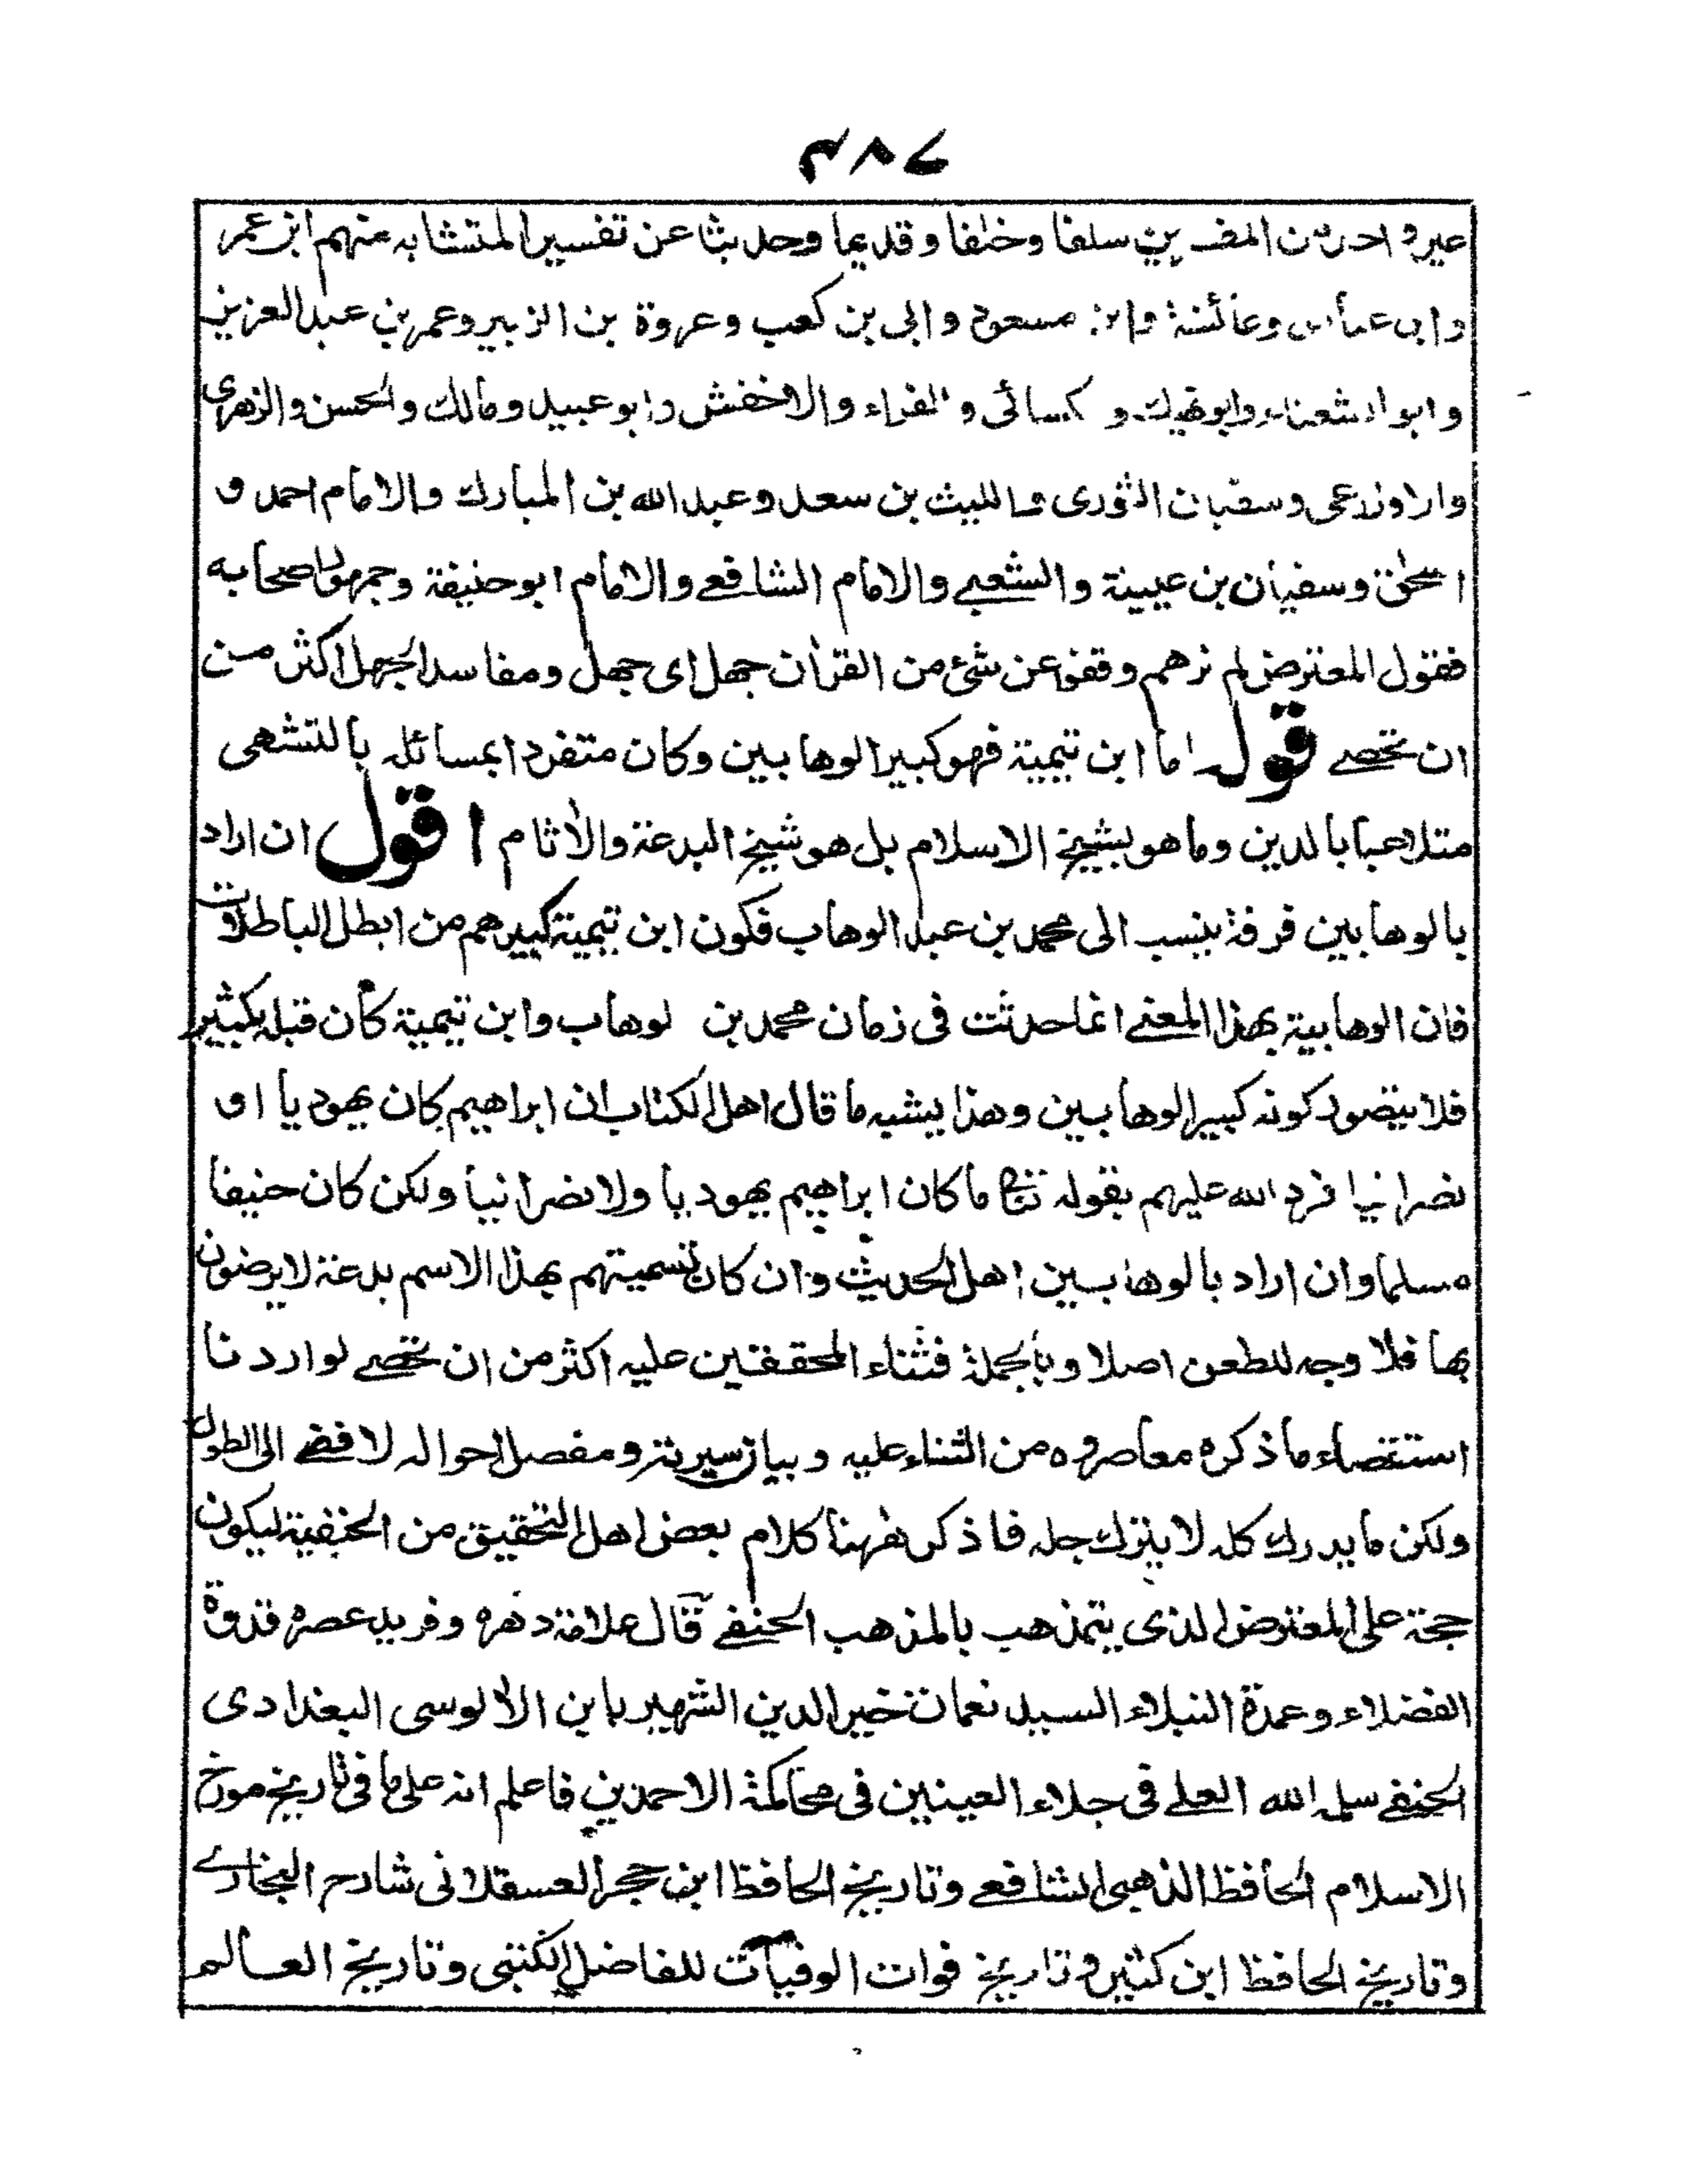 ۳۸۷
غير واحد من المفسرين سلفا وخلفا وقديما وحديثا عن تفسير المتشابه منهم ابن عمر
وابن عباس وعائشة وابن مسعود وابي بن كعب وعروة بن الزبير وعمر بن عبد العزيز
وابو الشعثاء وابو نهيك و كسائى والفراء والاخفش وابو عبيد ومالك والحسن والزهرى
والاوزاعى وسفيان الثورى والليث بن سعد وعبد الله بن المبارك والامام احمد و
اسحٰق وسفيان بن عيينة والشعبے والامام الشافعے والامام ابو حنيفة وجمهور اصحابه
فقول المعترض لم نرهم وقفوا عن شئ من القرأن جهل اى جهل ومفاسد الجهل اكثر من
ان تحصے قوله اما ابن تيمية فهو كبير الوهابيين وكان متفردا بمسائله بالتشهى
متلاعبا بالدين وما هو بشيخ الاسلام بل هو شيخ البدعة والأثام اقول ان اراد
بالوهابيين فرقة ينسب الى محمد بن عبد الوهاب فكون ابن تيمية كبيرهم من ابطل الباطلات
فان الوهابية بهذا المعنے انما حدثت فى زمان محمد بن لوهاب وابن تيمية كان قبله بكثير
فلا يتصور كونه كبير الوهابيين وهذا يشبه ما قال اهل الكتاب ان ابراهيم كان يهوديا او
نصرانيا فرد الله عليهم بقوله تعالى ما كان ابراهيم يهوديا ولا نصرانيا ولكن كان حنيفا
مسلما وان اراد بالوهابيين اهل الحديث وان كان تسميتهم بهذا الاسم بدعة لا يرضون
بها فلا وجه للطعن اصلا وبالجملة فثناء المحققين عليه اكثر من ان تحصے لو اردنا
استقصاء ما ذكره معاصروه من الثناء عليه وبيان سيرته ومفصل احواله لافضے الى الطول
ولكن ما يدرك كله لا يترك جله فاذكر ههنا كلام بعض اهل التحقيق من الحنفية ليكون
حجة على المعترض الذى يتمذهب بالمذهب الحنفے قال علامة دهره وفريد عصره قدوة
الفضلاء وعمدة النبلاء السيد نعمان خير الدين الشهير بابن الألوسى البغدادى
الحنفے سلمه الله العلے فى جلاء العينين فى محاكمة الاحمدين فاعلم انه على ما فى تاريخ مورخ
الاسلام الحافظ الذهبى الشافعے وتاريخ الحافظ ابن حجر العسقلانى شارح البخارے
وتاريخ الحافظ ابن كثير وتاريخ فوات الوفيات للفاضل الكتبى وتاريخ العالم